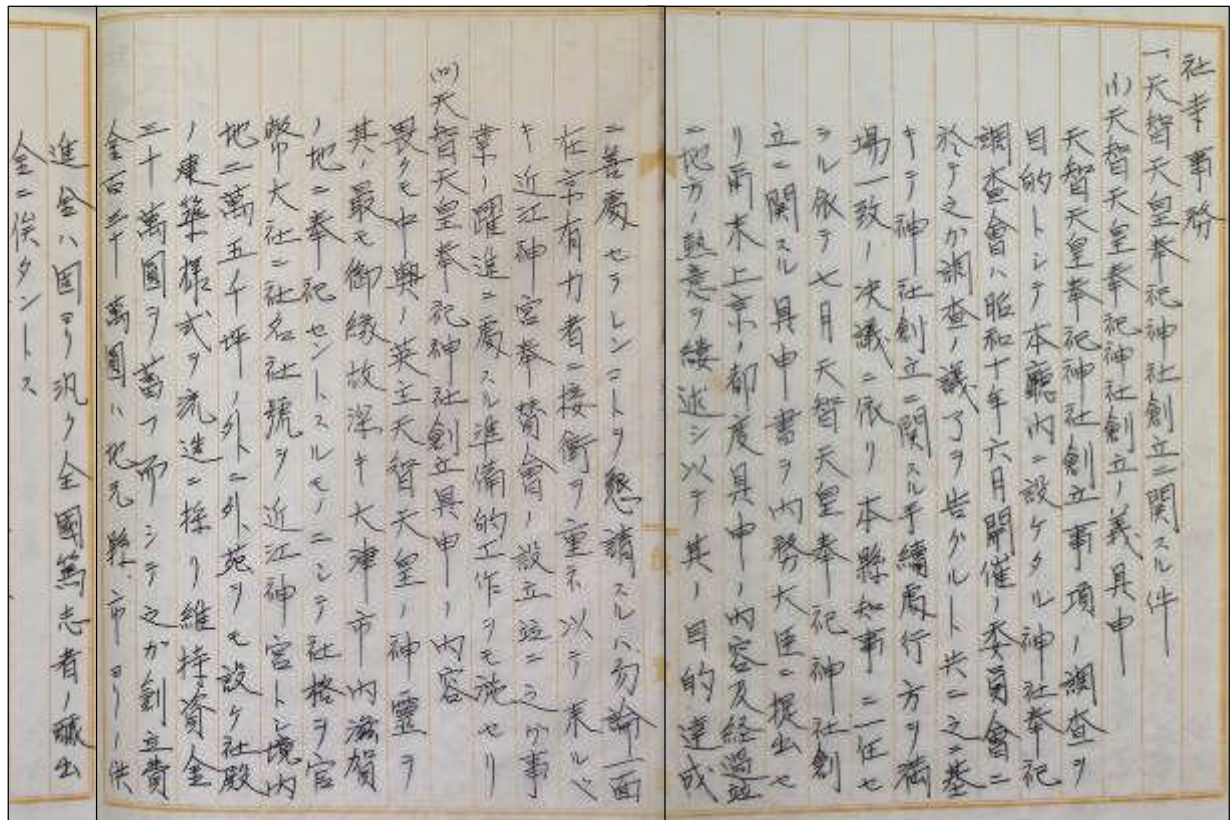 社寺事務
一、天智天皇奉祀神社創立ニ関スル件
(1)天智天皇奉祀神社創立ノ義具申
天智天皇奉祀神社創立事項ノ調査ヲ
目的トシテ本廳内ニ設ケタル神社奉祀
調査會ハ昭和十年六月開催ノ委員會ニ
於テ之カ調査ノ議了ヲ告グルト共ニ之ニ基
キテ神社創立ニ関スル手續處行方ヲ満
場一致ノ決議ニ依リ本縣知事ニ一任セ
ラル依テ七月天智天皇奉祀神社創
立ニ関スル具申書ヲ内務大臣ニ提出セ
リ爾来上京ノ都度具申ノ内容及経過並
ニ地方ノ熱意ヲ縷述シ以テ其ノ目的達成
ニ善處セラレンコトヲ懇請スルハ勿論一面
在京有力者ニ接衝ヲ重ネ以テ来ルベ
キ近江神宮奉賛會ノ設立並ニ之ガ事
業ノ躍進ニ處スル準備的工作ヲモ施セリ
(ロ)天智天皇奉祀神社創立具申ノ内容
畏クモ中興ノ英主天智天皇ノ神靈ヲ
其ノ最モ御縁故深キ大津市内滋賀
ノ地ニ奉祀セントスルモノニシテ社格ヲ官
幣大社ニ社名社號ヲ近江神宮トシ境内
地二萬五千坪ノ外ニ外苑ヲモ設ケ社殿
ノ建築様式ヲ流造ニ採リ維持資金
三十萬圓ヲ蓄フ而シテ之ガ創立費
金百三十萬圓ハ地元縣、市ヨリノ供
進金ハ固ヨリ汎ク全國篤志者ノ醵出
金ニ俟タントス